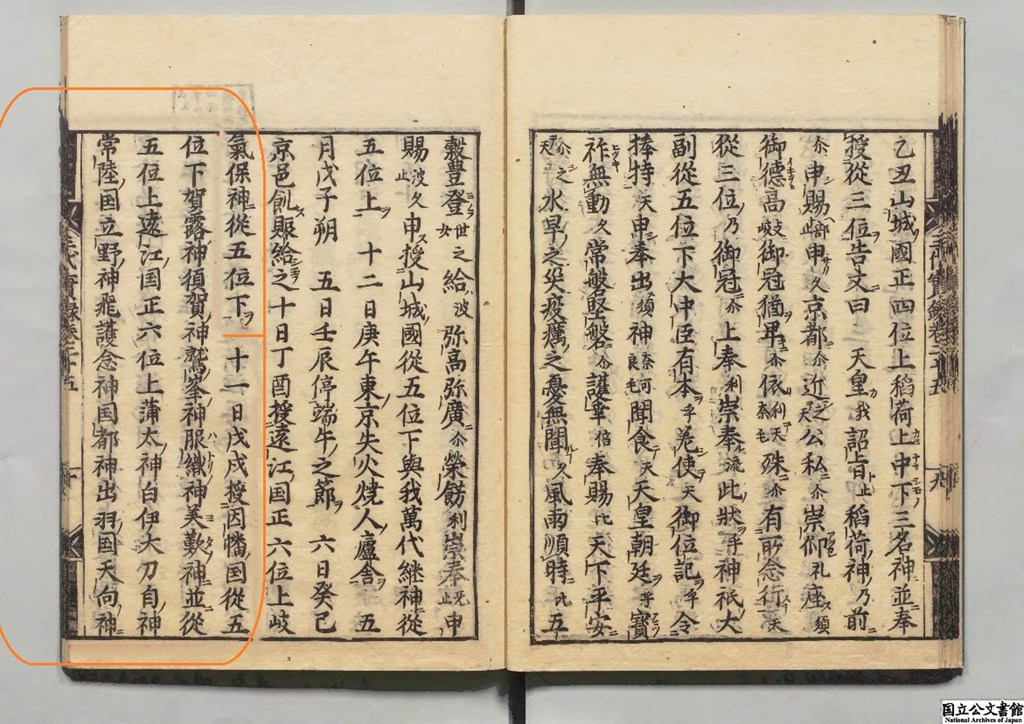 乙丑山城國正四位上稻荷上中下三名神並奉
授從三位告文曰　天皇我詔旨止稻荷神乃前
尓申賜部止申久京都尓近之天公私尓崇仰礼座須
御德高岐御冠猶卑尓依利天奈毛殊尓有所念行天
從三位乃御冠尓上奉利崇奉流此狀乎神祇大
副從五位下大中臣有本乎差使天御位記乎令
捧持天申奉出須神奈可良毛聞食天天皇朝廷乎寶
祚無動久常磐堅磐尓護幸倍奉賜比天下平安
尓天之水旱之災疫癘之憂無聞久風雨順時比五
穀豊登世女之給波弥高弥廣尓榮餝利崇奉牟止申
賜波久止申授山城國從五位下與我萬代継神從
五位上　十二日庚午東京失火燒人廬舍　五
月戊子朔　五日壬辰停端午之節　六日癸巳
京邑飢賑給之十日丁酉授遠江国正六位上岐
氣保神從五位下　十一日戊戌授因幡国從五
位下賀露神須賀神鷲峯神服織神美歎神並從
五位上遠江国正六位上蒲太神白伊大刀自神
常陸国立野神飛護念神国都神出羽国天向神
三代實錄卷二十五
九
三代實錄卷二十五
十
国立公文書館
National Archives of Japan